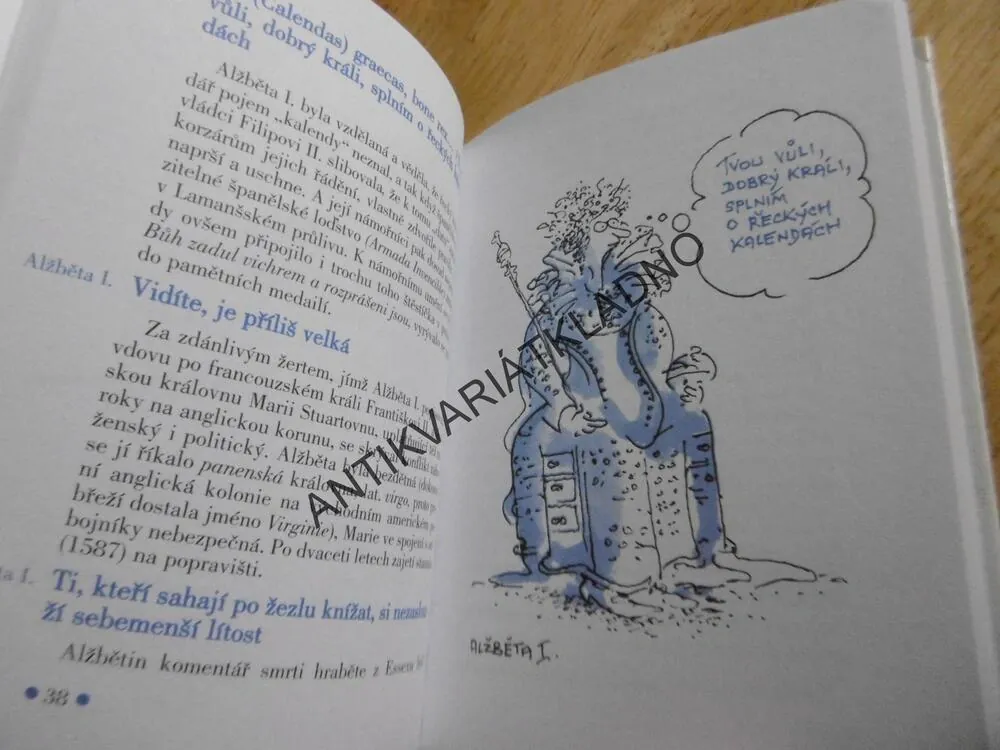 (Calendas) graecas, bone rex
vůli, dobrý králi, splním o řeckých
dách
Alžběta I. byla vzdělaná a věděla, že
dář pojem „kalendy" neznal, a tak když
vládci Filipovi II. slibovala, že k tomu
korzárům jejich řádění, vlastně zdvořile
naprší a uschne. A její námořníci pak
zitelné španělské loďstvo (Armada
v Lamanšském průlivu. K námořnímu umění
dy ovšem připojilo i trochu toho štěstíčka v
Bůh zadul vichrem a rozprášeni jsou, vyrývalo
do pamětních medailí.
Alžběta I.
Vidíte, je příliš velká
Za zdánlivým žertem, jímž Alžběta I.
vdovu po francouzském králi Františkovi II.
skou královnu Marii Stuartovnu,
roky na anglickou korunu, se skrýval konflikt
ženský i politický. Alžběta byla bezdětná
se jí říkalo panenská královna, lat. virgo, proto
ní anglická kolonie na východním americkém
břeží dostala jméno Virginie), Marie ve spojení s
bojníky nebezpečná. Po dvaceti letech zajetí
(1587) na popravišti.
ta I.
Ti, kteří sahají po žezlu knížat, si
ží sebemenší lítost
Alžbětin komentář smrti hraběte z Essexu
38
TVOU VŮLI,
DOBRÝ KRÁLI,
SPLNÍM
O ŘECKÝCH
KALENDÁCH
ALŽBĚTA I.
ANTIKVARIÁTKLADNO